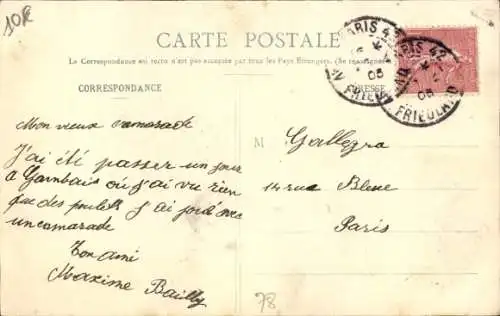 10F
CARTE POSTALE
La Correspondance au recto n'est pas acceptée par tous les Pays Étrangers. (Se renseigner
CORRESPONDANCE
ADRESSE
PARIS 42
05
AV. FRIEDLAND
PARIS 42
05
AV. FRIEDLAND
Mon vieux camarade
J'ai été passer un jour
a Gambais où j'ai vu rien
que des poulets j'ai
un camarade
Ton ami
Maxime Bailly
M
Gallegra
14 rue Bleue
Paris
78